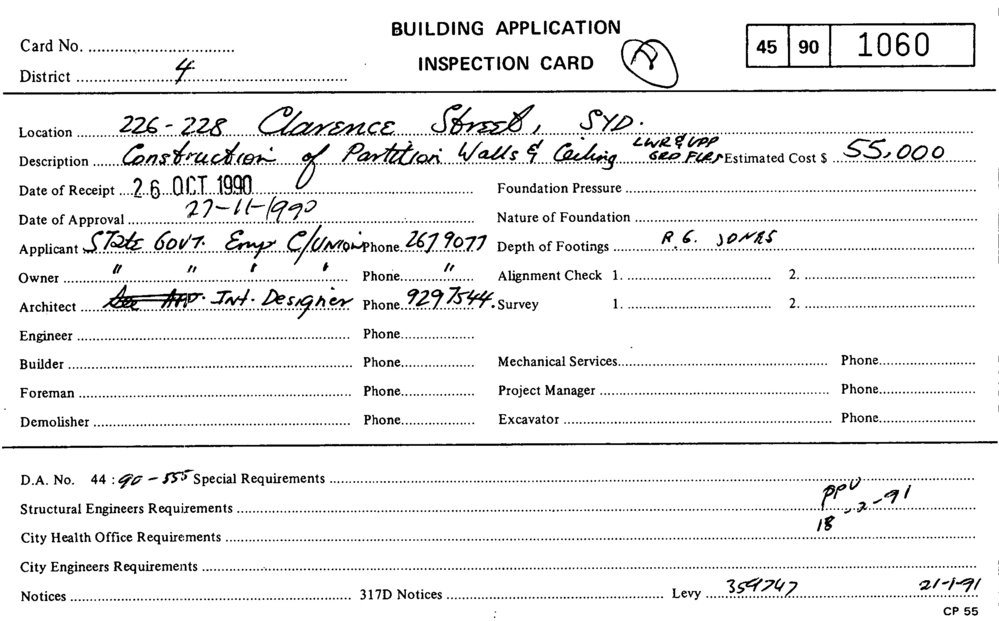 BUILDING APPLICATION
INSPECTION CARD
Card No.
District 4
45 90 1060
Location 226-228 Clarence Street, SYD.
Description Construction of Partition Walls & Ceiling LWR & UPP GRD FLRS Estimated Cost $ 55,000
Date of Receipt 26 OCT 1990 Foundation Pressure
Date of Approval 27-11-1990 Nature of Foundation
Applicant STate GOVT. Emp C/UNION Phone 267 9077 Depth of Footings R.G. JONES
Owner " " " " Phone " Alignment Check 1. 2.
Architect See App. Int. Designer Phone 929 7544. Survey 1. 2.
Engineer Phone
Builder Phone Mechanical Services Phone
Foreman Phone Project Manager Phone
Demolisher Phone Excavator Phone
D.A. No. 44 : 90 - 555 Special Requirements
PPU
Structural Engineers Requirements 18-2-91
City Health Office Requirements
City Engineers Requirements
Notices 317D Notices Levy 359747 21-1-91
CP 55